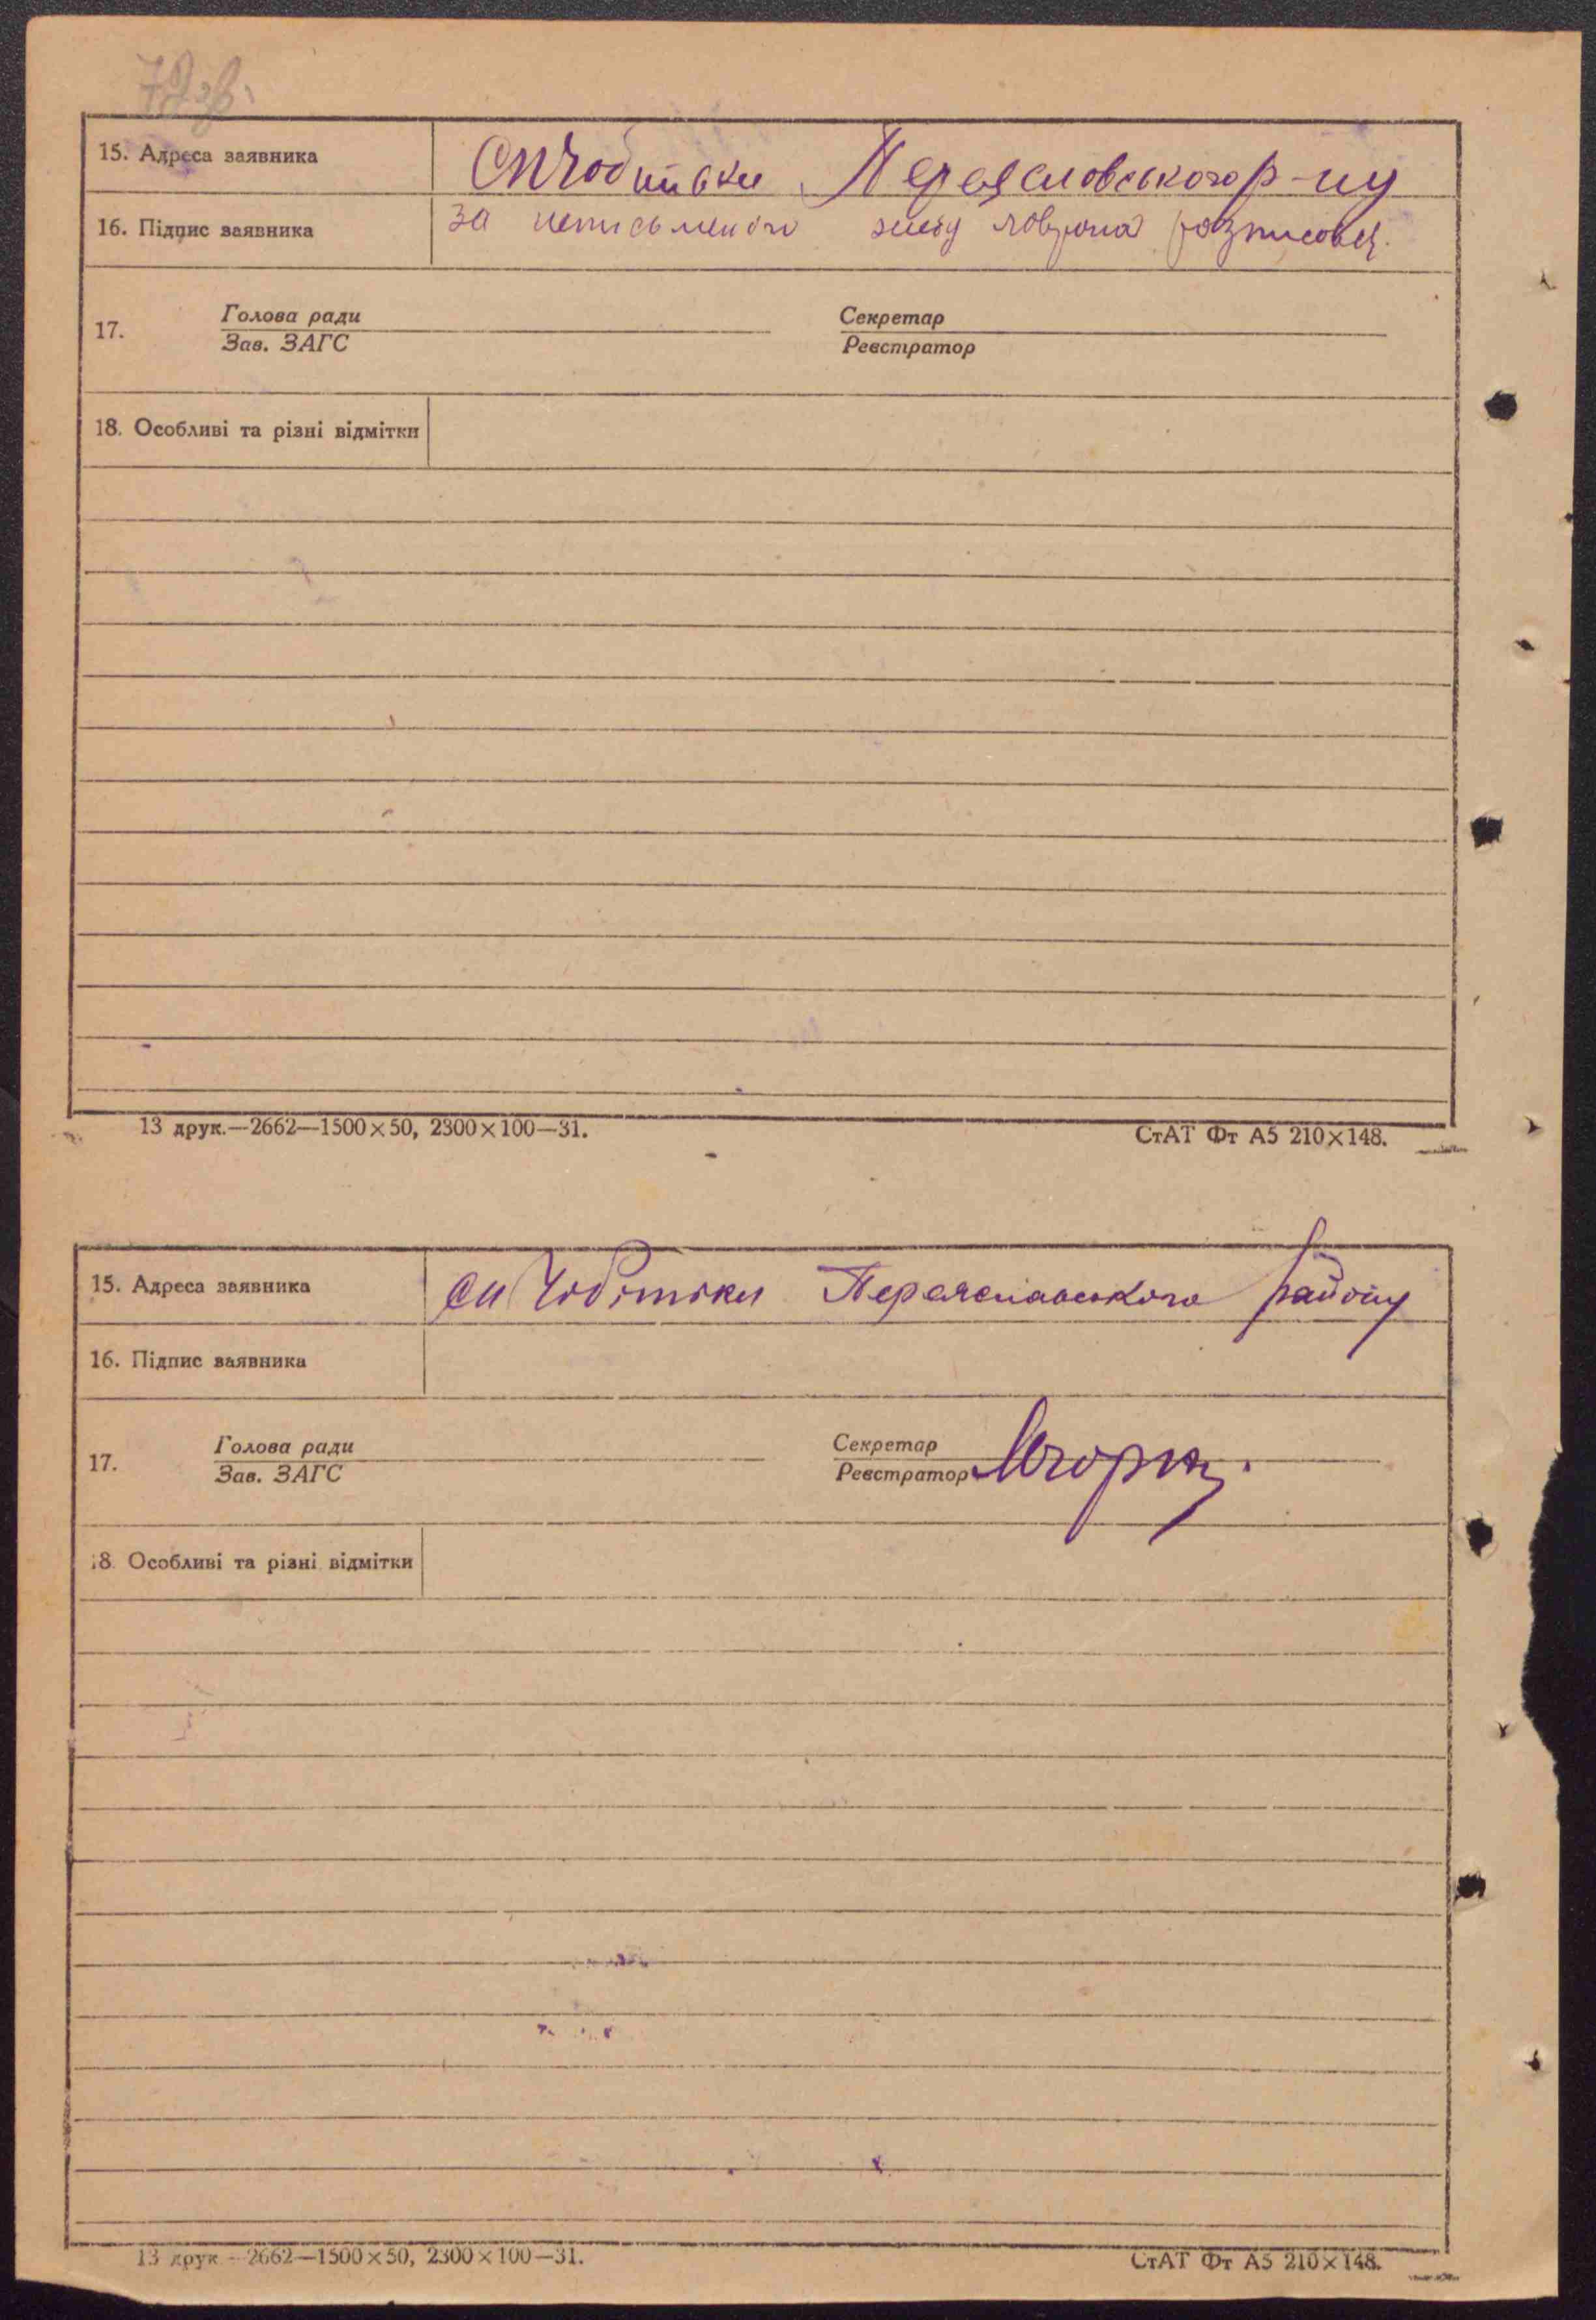 79 зв.
15. Адреса заявника Переяславського р-ну
16. Підпис заявника за неписьменого розписовся.
17. Голова ради Секретар
Зав. ЗАГС Реєстратор
18. Особливі та різні відмітки
13 друк.—2662—1500×50, 2300×100—31. СтАТ Фт А5 210×148.
15. Адреса заявника Чобітьки Переяславського району
16. Підпис заявника
17. Голова ради Секретар
Зав. ЗАГС Реєстратор
18. Особливі та різні відмітки
13 друк.—2662—1500×50, 2300×100—31. СтАТ Фт А5 210×148.